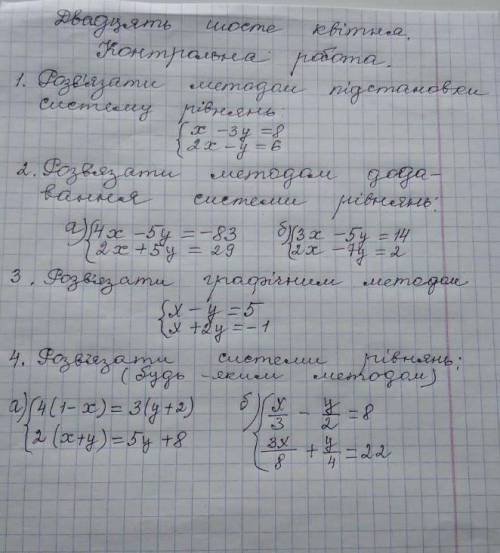 Двадцять шосте квітня.
Контрольна робота.
1. Розв'язати методом підстановки
систему рівнянь:
{x - 3y = 8
{2x - y = 6
2. Розв'язати методом дода-
вання системи рівнянь:
а) {4x - 5y = -83 б) {3x - 5y = 14
{2x + 5y = 29 {2x - 7y = 2
3. Розв'язати графічним методом
{x - y = 5
{x + 2y = -1
4. Розв'язати системи рівнянь:
(будь-яким методом)
а) {4(1 - x) = 3(y + 2) б) {x/3 - y/2 = 8
{2(x + y) = 5y + 8 {3x/8 + y/4 = 22